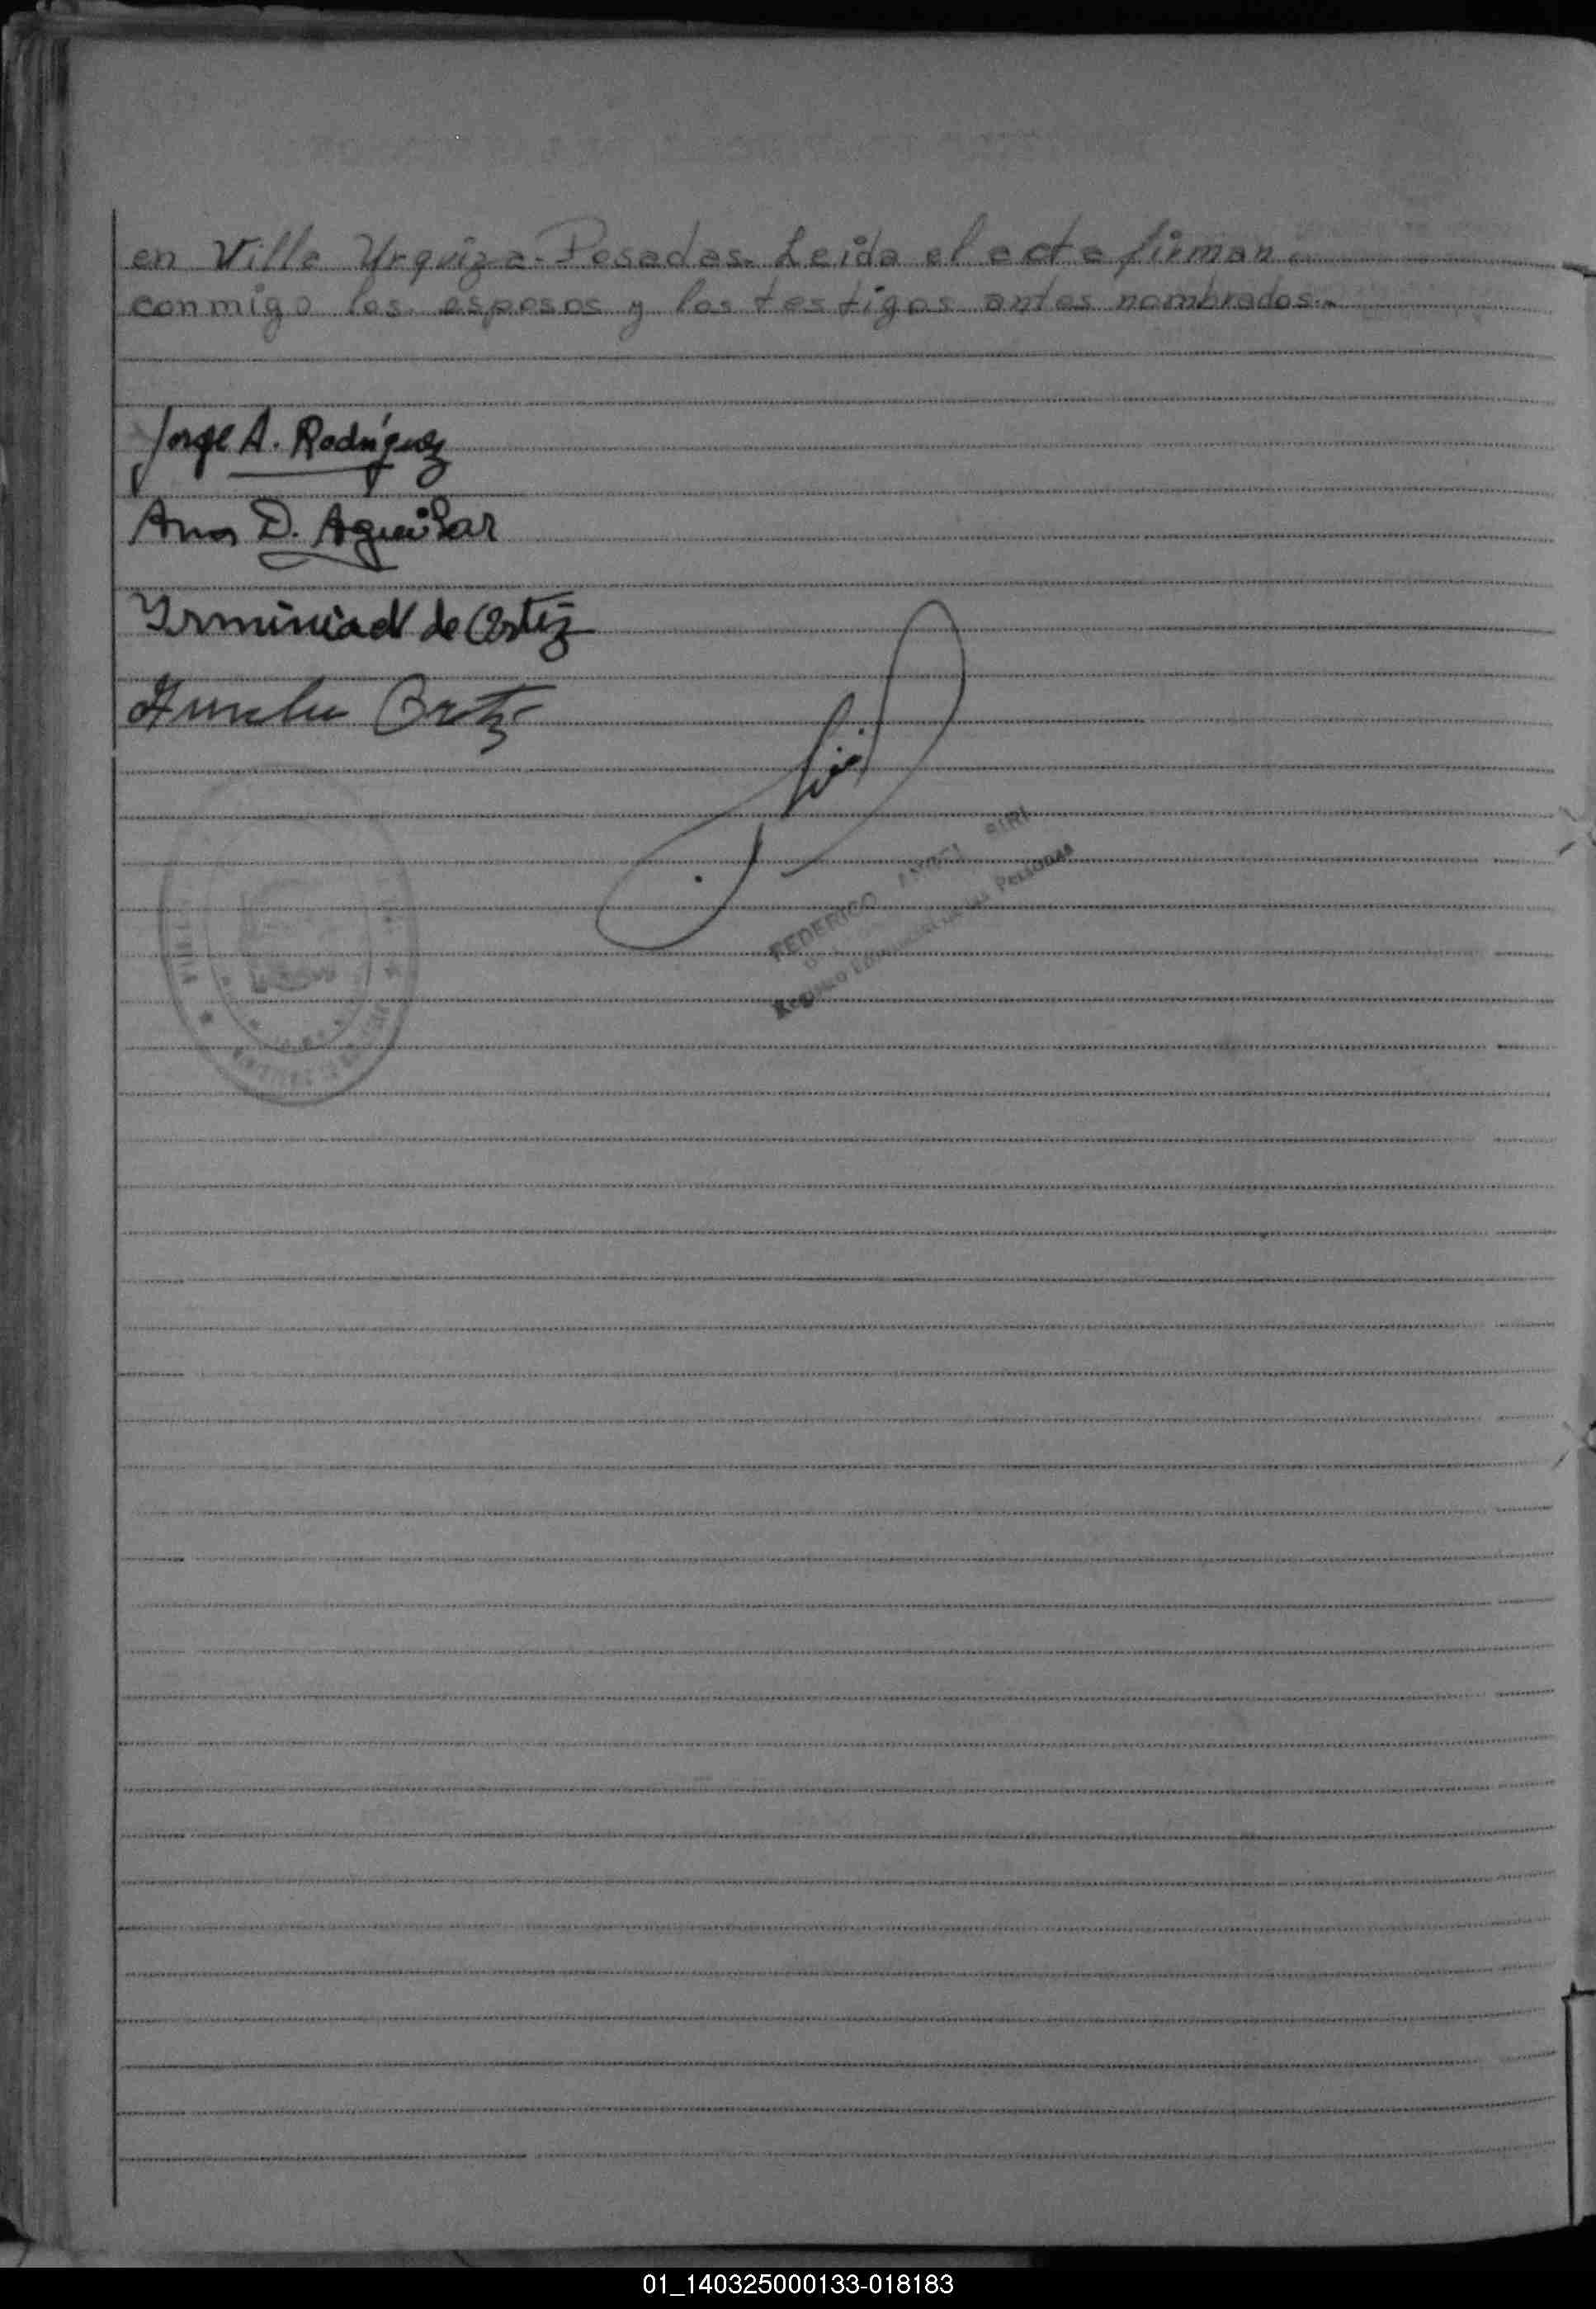 en Villa Urquiza-Posadas. Leida el acta firman
conmigo los esposos y los testigos antes nombrados.-
Jorge A. Rodríguez
Ana D. Aguilar
de Ortiz
Ortiz
FEDERICO SIRI
Registro de las Personas
01_140325000133-018183